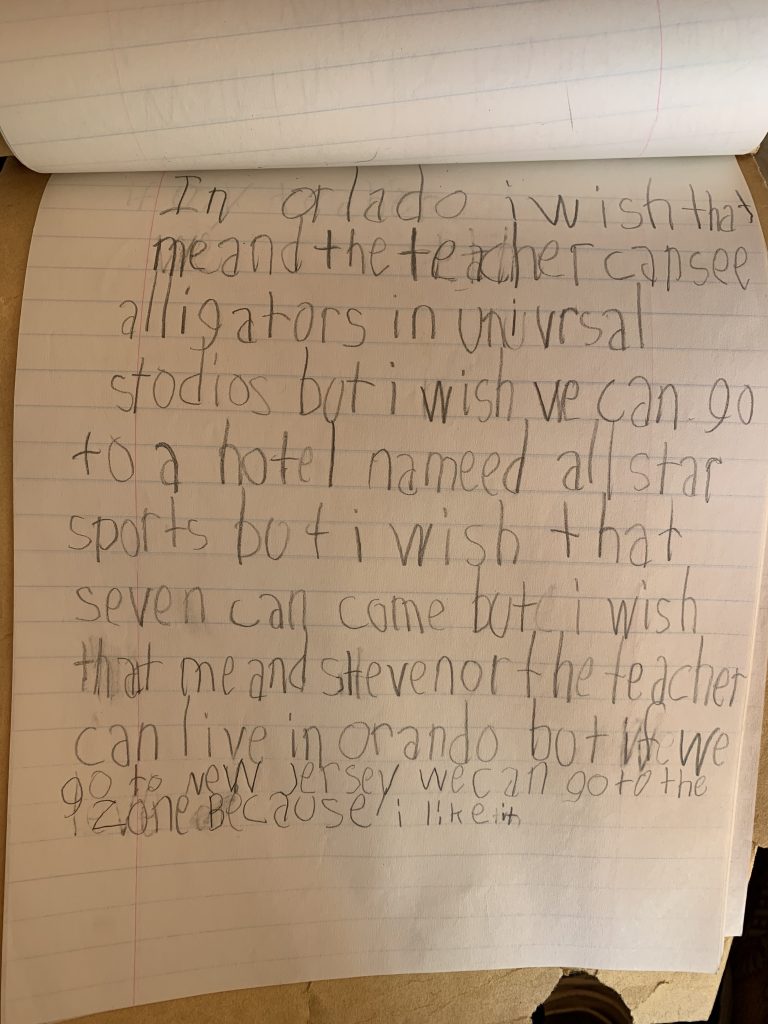 In orlado i wish that
me and the teacher can see
alligators in univrsal
stodios but i wish we can go
to a hotel nameed all star
sports but i wish that
seven can come but i wish
that me and steven or the teacher
can live in orando but if we
go to New jersey we can go to the
zone Because i like it